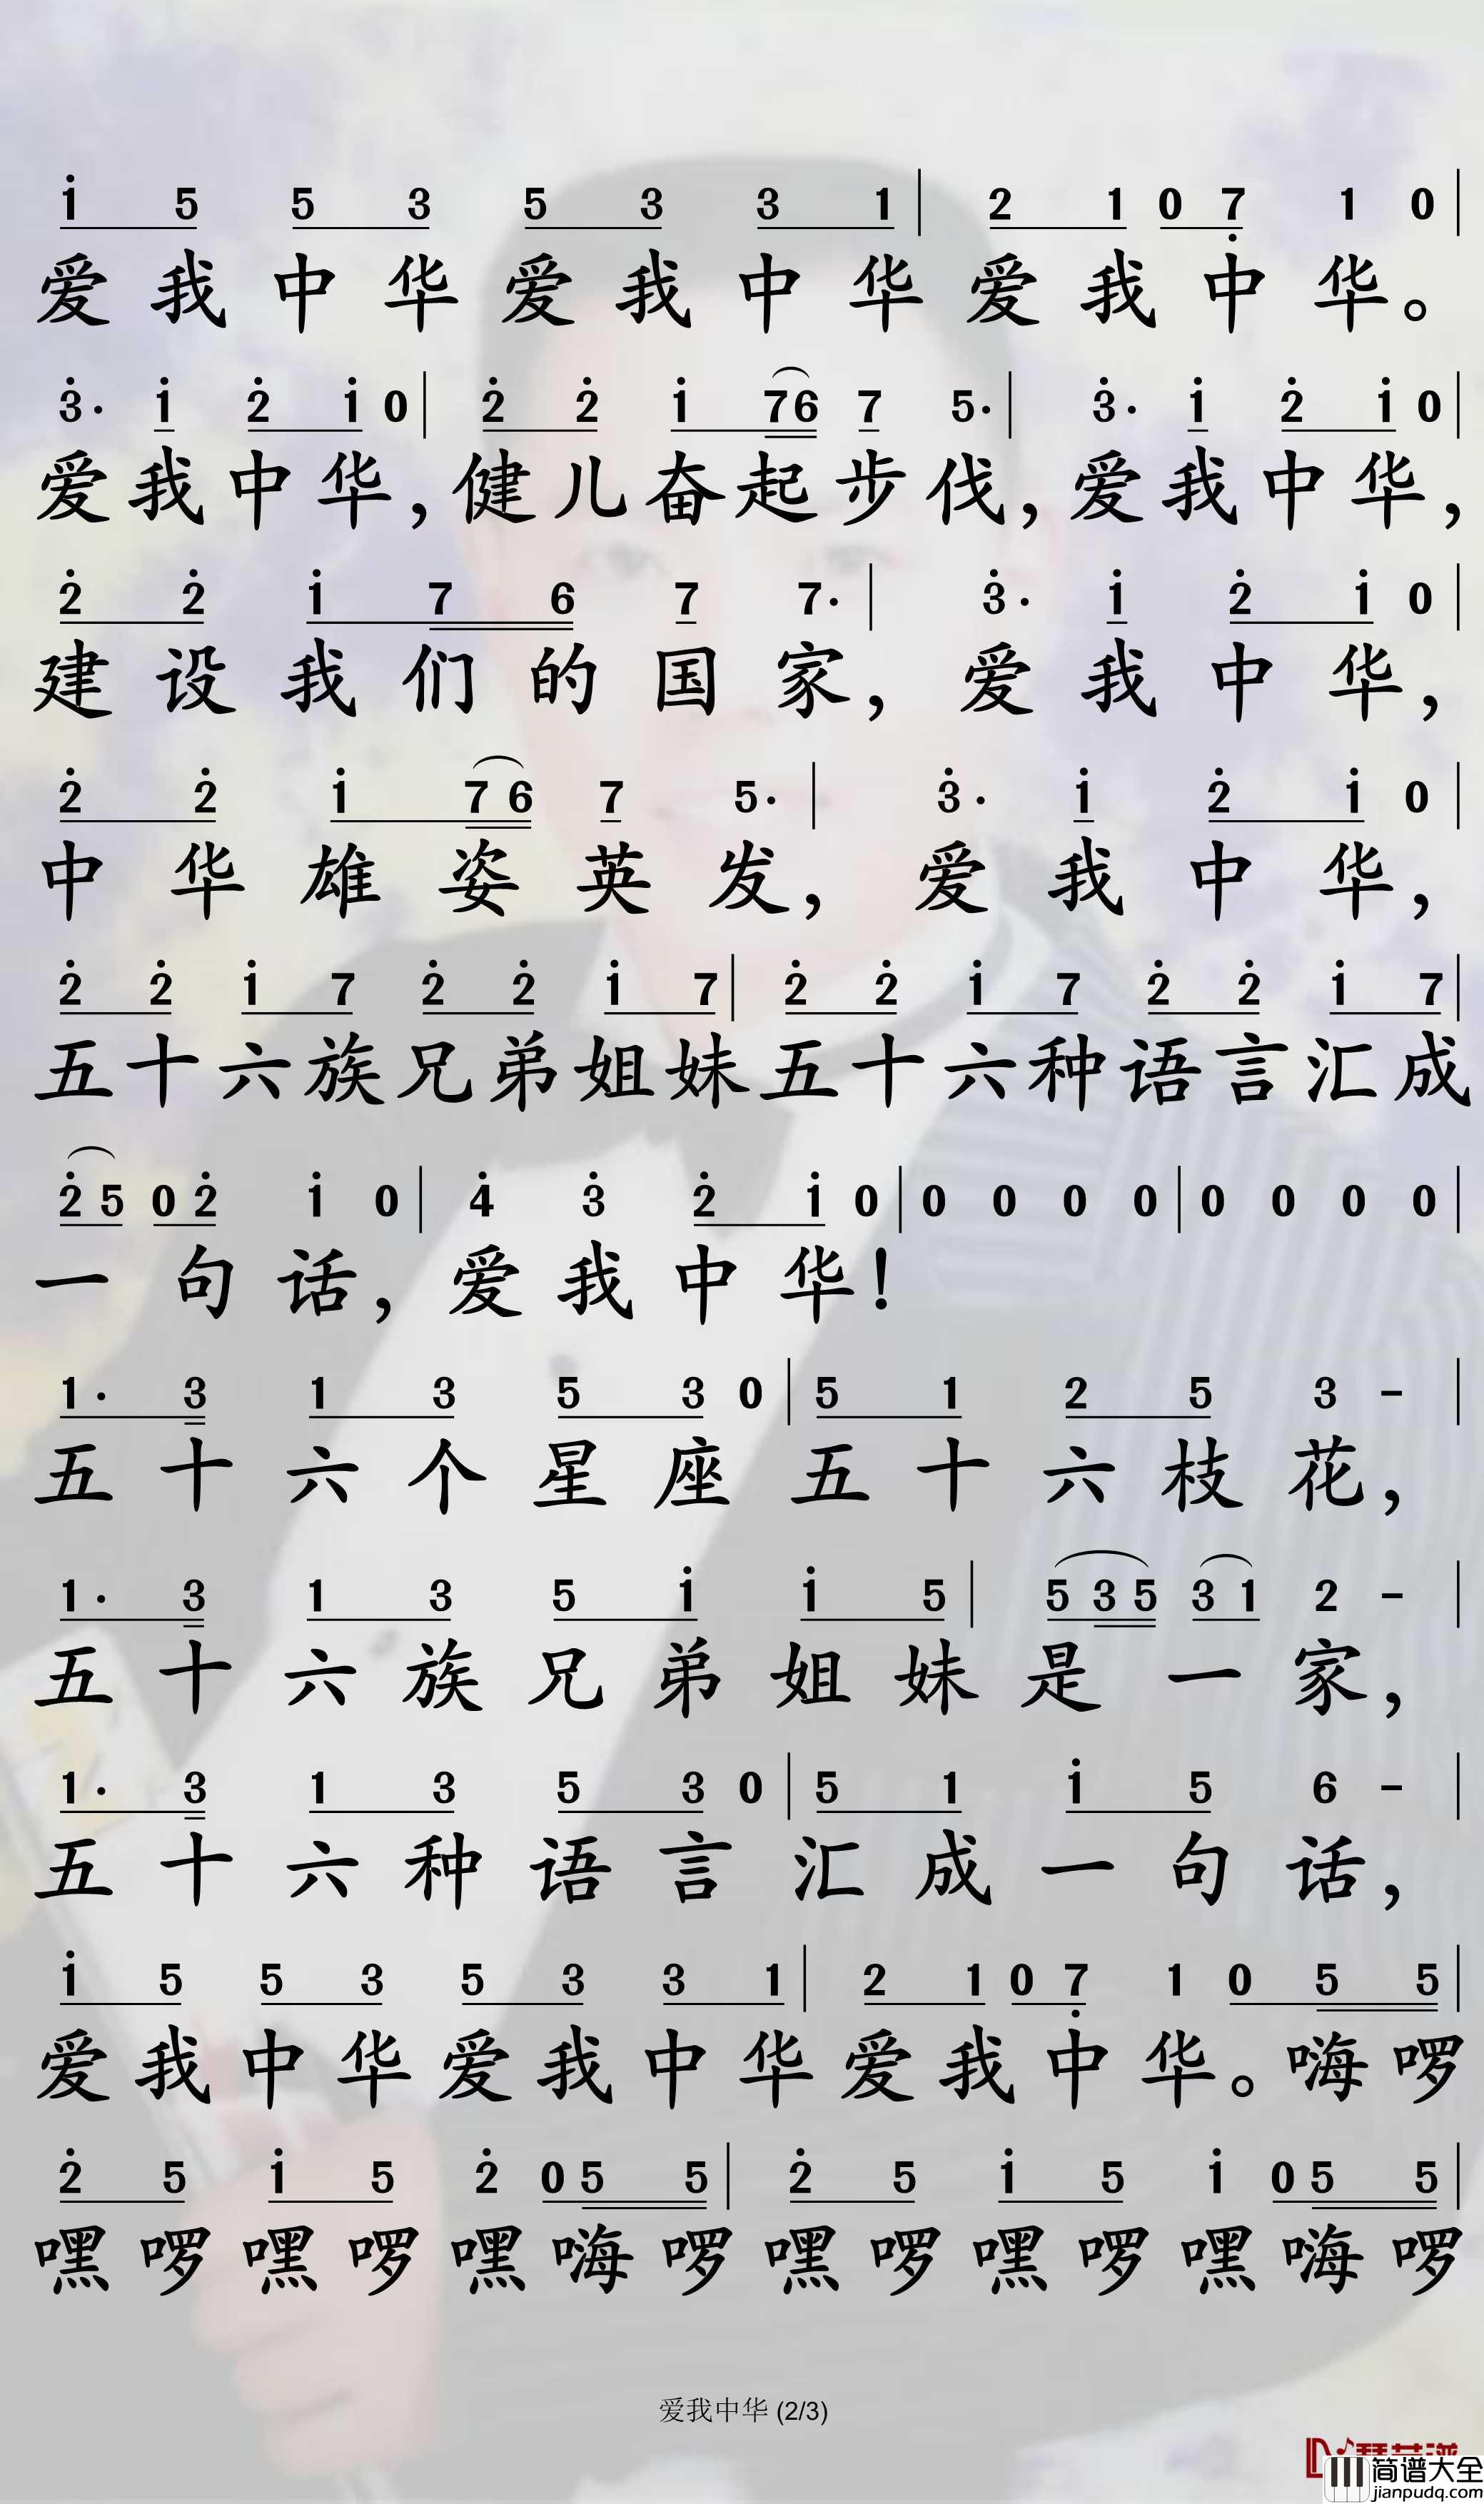 i 5 5 3 5 3 3 1 | 2 1 0 7̣ 1 0 |
爱我中华爱我中华爱我中华。
3̇· i 2̇ i 0 | 2̇ 2̇ i 76 7 5· | 3̇· i 2̇ i 0 |
爱我中华,健儿奋起步伐,爱我中华,
2̇ 2̇ i 7 6 7 7· | 3̇· i 2̇ i 0 |
建设我们的国家,爱我中华,
2̇ 2̇ i 7 6 7 5· | 3̇· i 2̇ i 0 |
中华雄姿英发,爱我中华,
2̇ 2̇ i 7 2̇ 2̇ i 7 | 2̇ 2̇ i 7 2̇ 2̇ i 7 |
五十六族兄弟姐妹五十六种语言汇成
2̇ 5 0 2̇ i 0 | 4̇ 3̇ 2̇ i 0 | 0 0 0 0 | 0 0 0 0 |
一句话,爱我中华!
1· 3 1 3 5 3 0 | 5 1 2 5 3 - |
五十六个星座五十六枝花,
1· 3 1 3 5 i i 5 | 5 3 5 3 1 2 - |
五十六族兄弟姐妹是一家,
1· 3 1 3 5 3 0 | 5 1 i 5 6 - |
五十六种语言汇成一句话,
i 5 5 3 5 3 3 1 | 2 1 0 7̣ 1 0 5 5 |
爱我中华爱我中华爱我中华。嗨啰
2̇ 5 i 5 2̇ 0 5 5 | 2̇ 5 i 5 i 0 5 5 |
嘿啰嘿啰嘿嗨啰嘿啰嘿啰嘿嗨啰
爱我中华 (2/3)
简谱大全
jianpudq.com